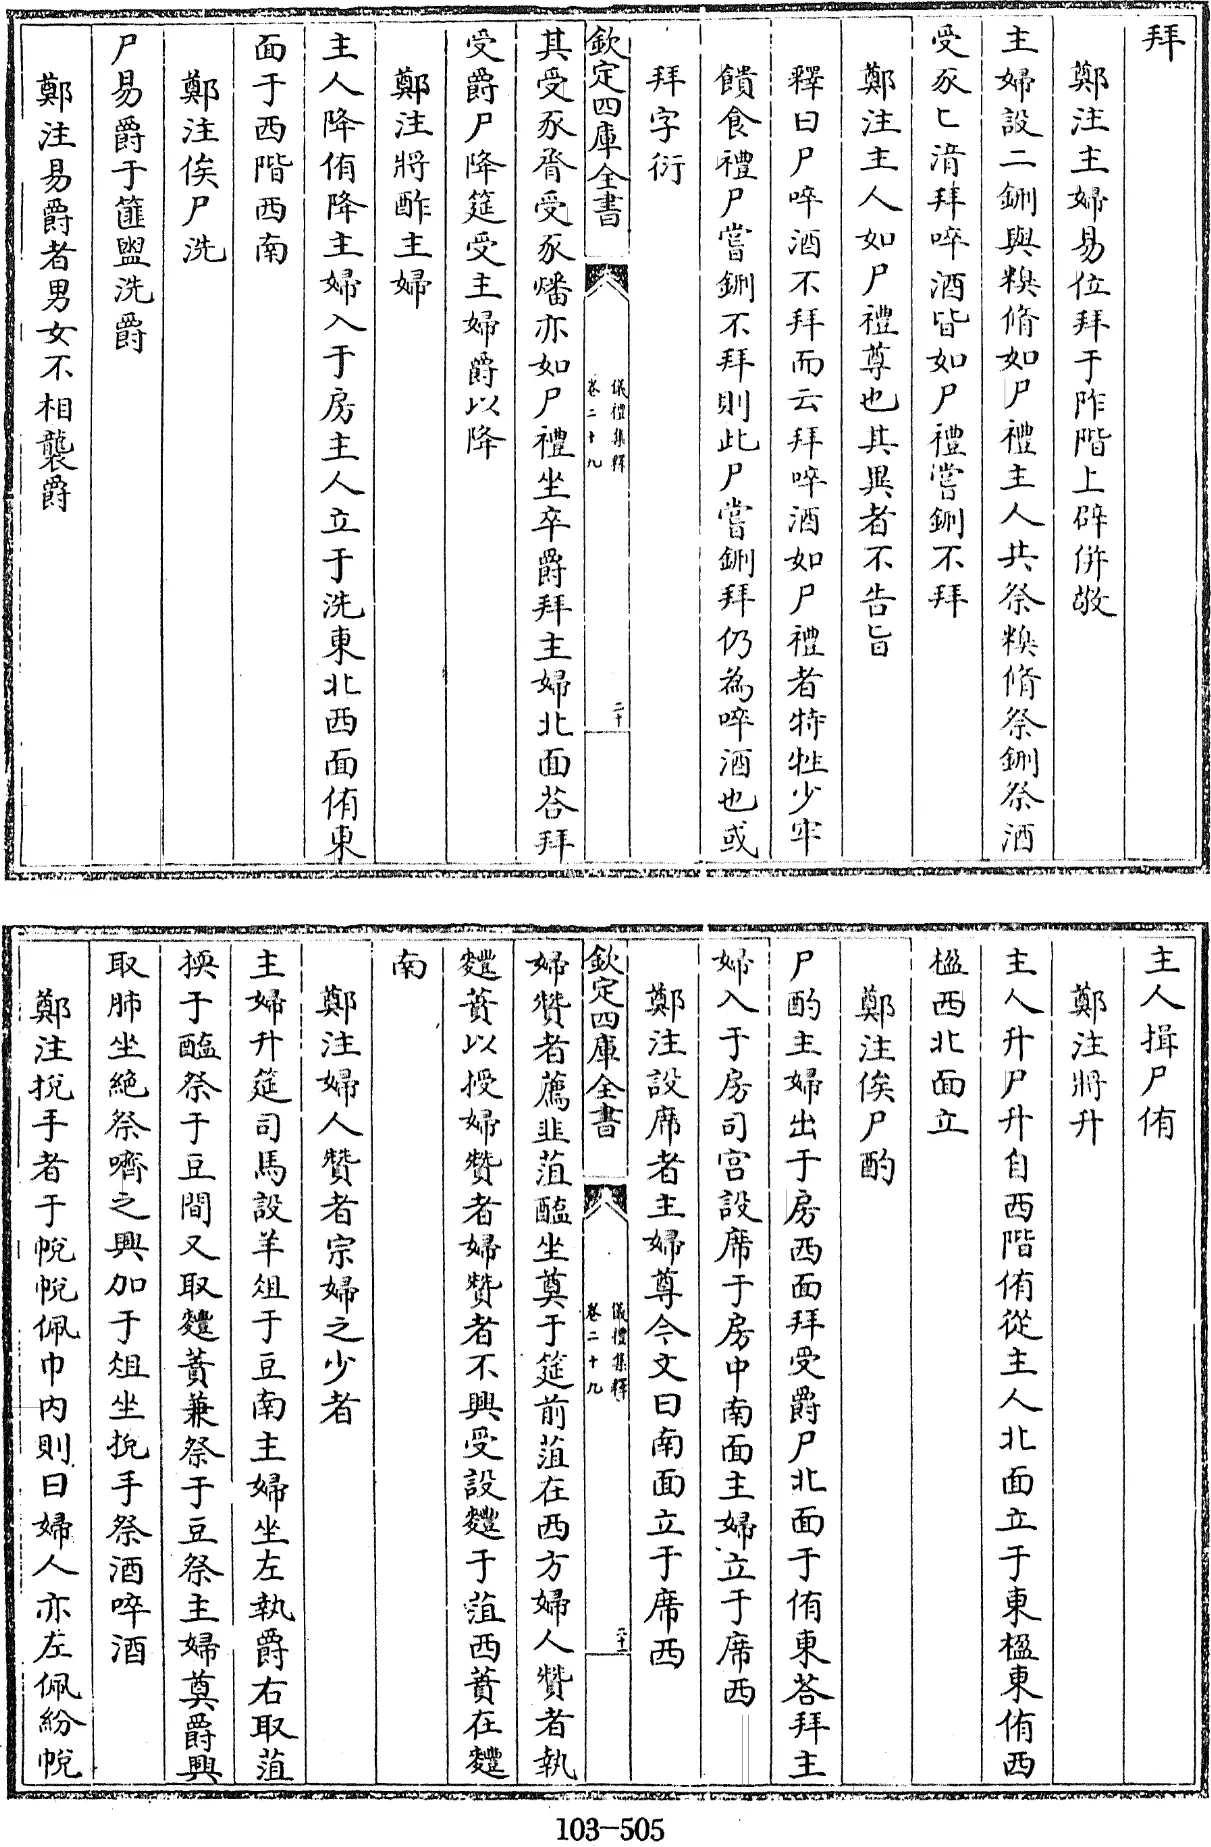 拜
鄭注主婦易位拜于阼階上辟併敬
主婦設二鉶與糗脩如尸禮主人共祭糗脩祭鉶祭酒
受豕匕湆拜啐酒皆如尸禮嘗鉶不拜
鄭注主人如尸禮尊也其異者不告旨
釋曰尸啐酒不拜而云拜啐酒如尸禮者特牲少牢
饋食禮尸嘗鉶不拜則此尸嘗鉶拜仍為啐酒也或
拜字衍
欽定四庫全書
儀禮集釋
卷二十九
二十
其受豕脀受豕燔亦如尸禮坐卒爵拜主婦北面荅拜
受爵尸降筵受主婦爵以降
鄭注將酢主婦
主人降侑降主婦入于房主人立于洗東北西面侑東
面于西階西南
鄭注俟尸洗
尸易爵于篚盥洗爵
鄭注易爵者男女不相襲爵
主人揖尸侑
鄭注將升
主人升尸升自西階侑從主人北面立于東楹東侑西
楹西北面立
鄭注俟尸酌
尸酌主婦出于房西面拜受爵尸北面于侑東荅拜主
婦入于房司宮設席于房中南面主婦立于席西
鄭注設席者主婦尊今文曰南面立于席西
欽定四庫全書
儀禮集釋
卷二十九
二十一
婦贊者薦韭菹醢坐奠于筵前菹在西方婦人贊者執
麷蕡以授婦贊者婦贊者不興受設麷于菹西蕡在麷
南
鄭注婦人贊者宗婦之少者
主婦升筵司馬設羊俎于豆南主婦坐左執爵右取菹
㨎于醢祭于豆間又取麷蕡兼祭于豆祭主婦奠爵興
取肺坐絶祭嚌之興加于俎坐挩手祭酒啐酒
鄭注挩手者于帨帨佩巾内則曰婦人亦左佩紛帨
103-505